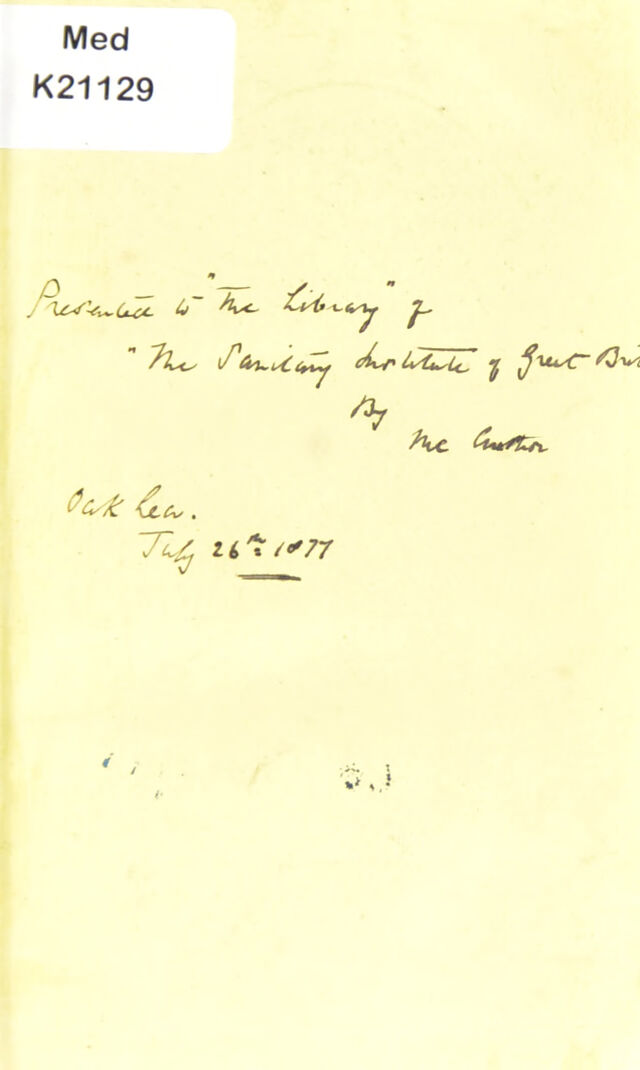 Med
K21129
Presented to "The Library" of
"The Sanitary Institute of Great Brit
By
The Author
Oak Lea.
July 26th 1877